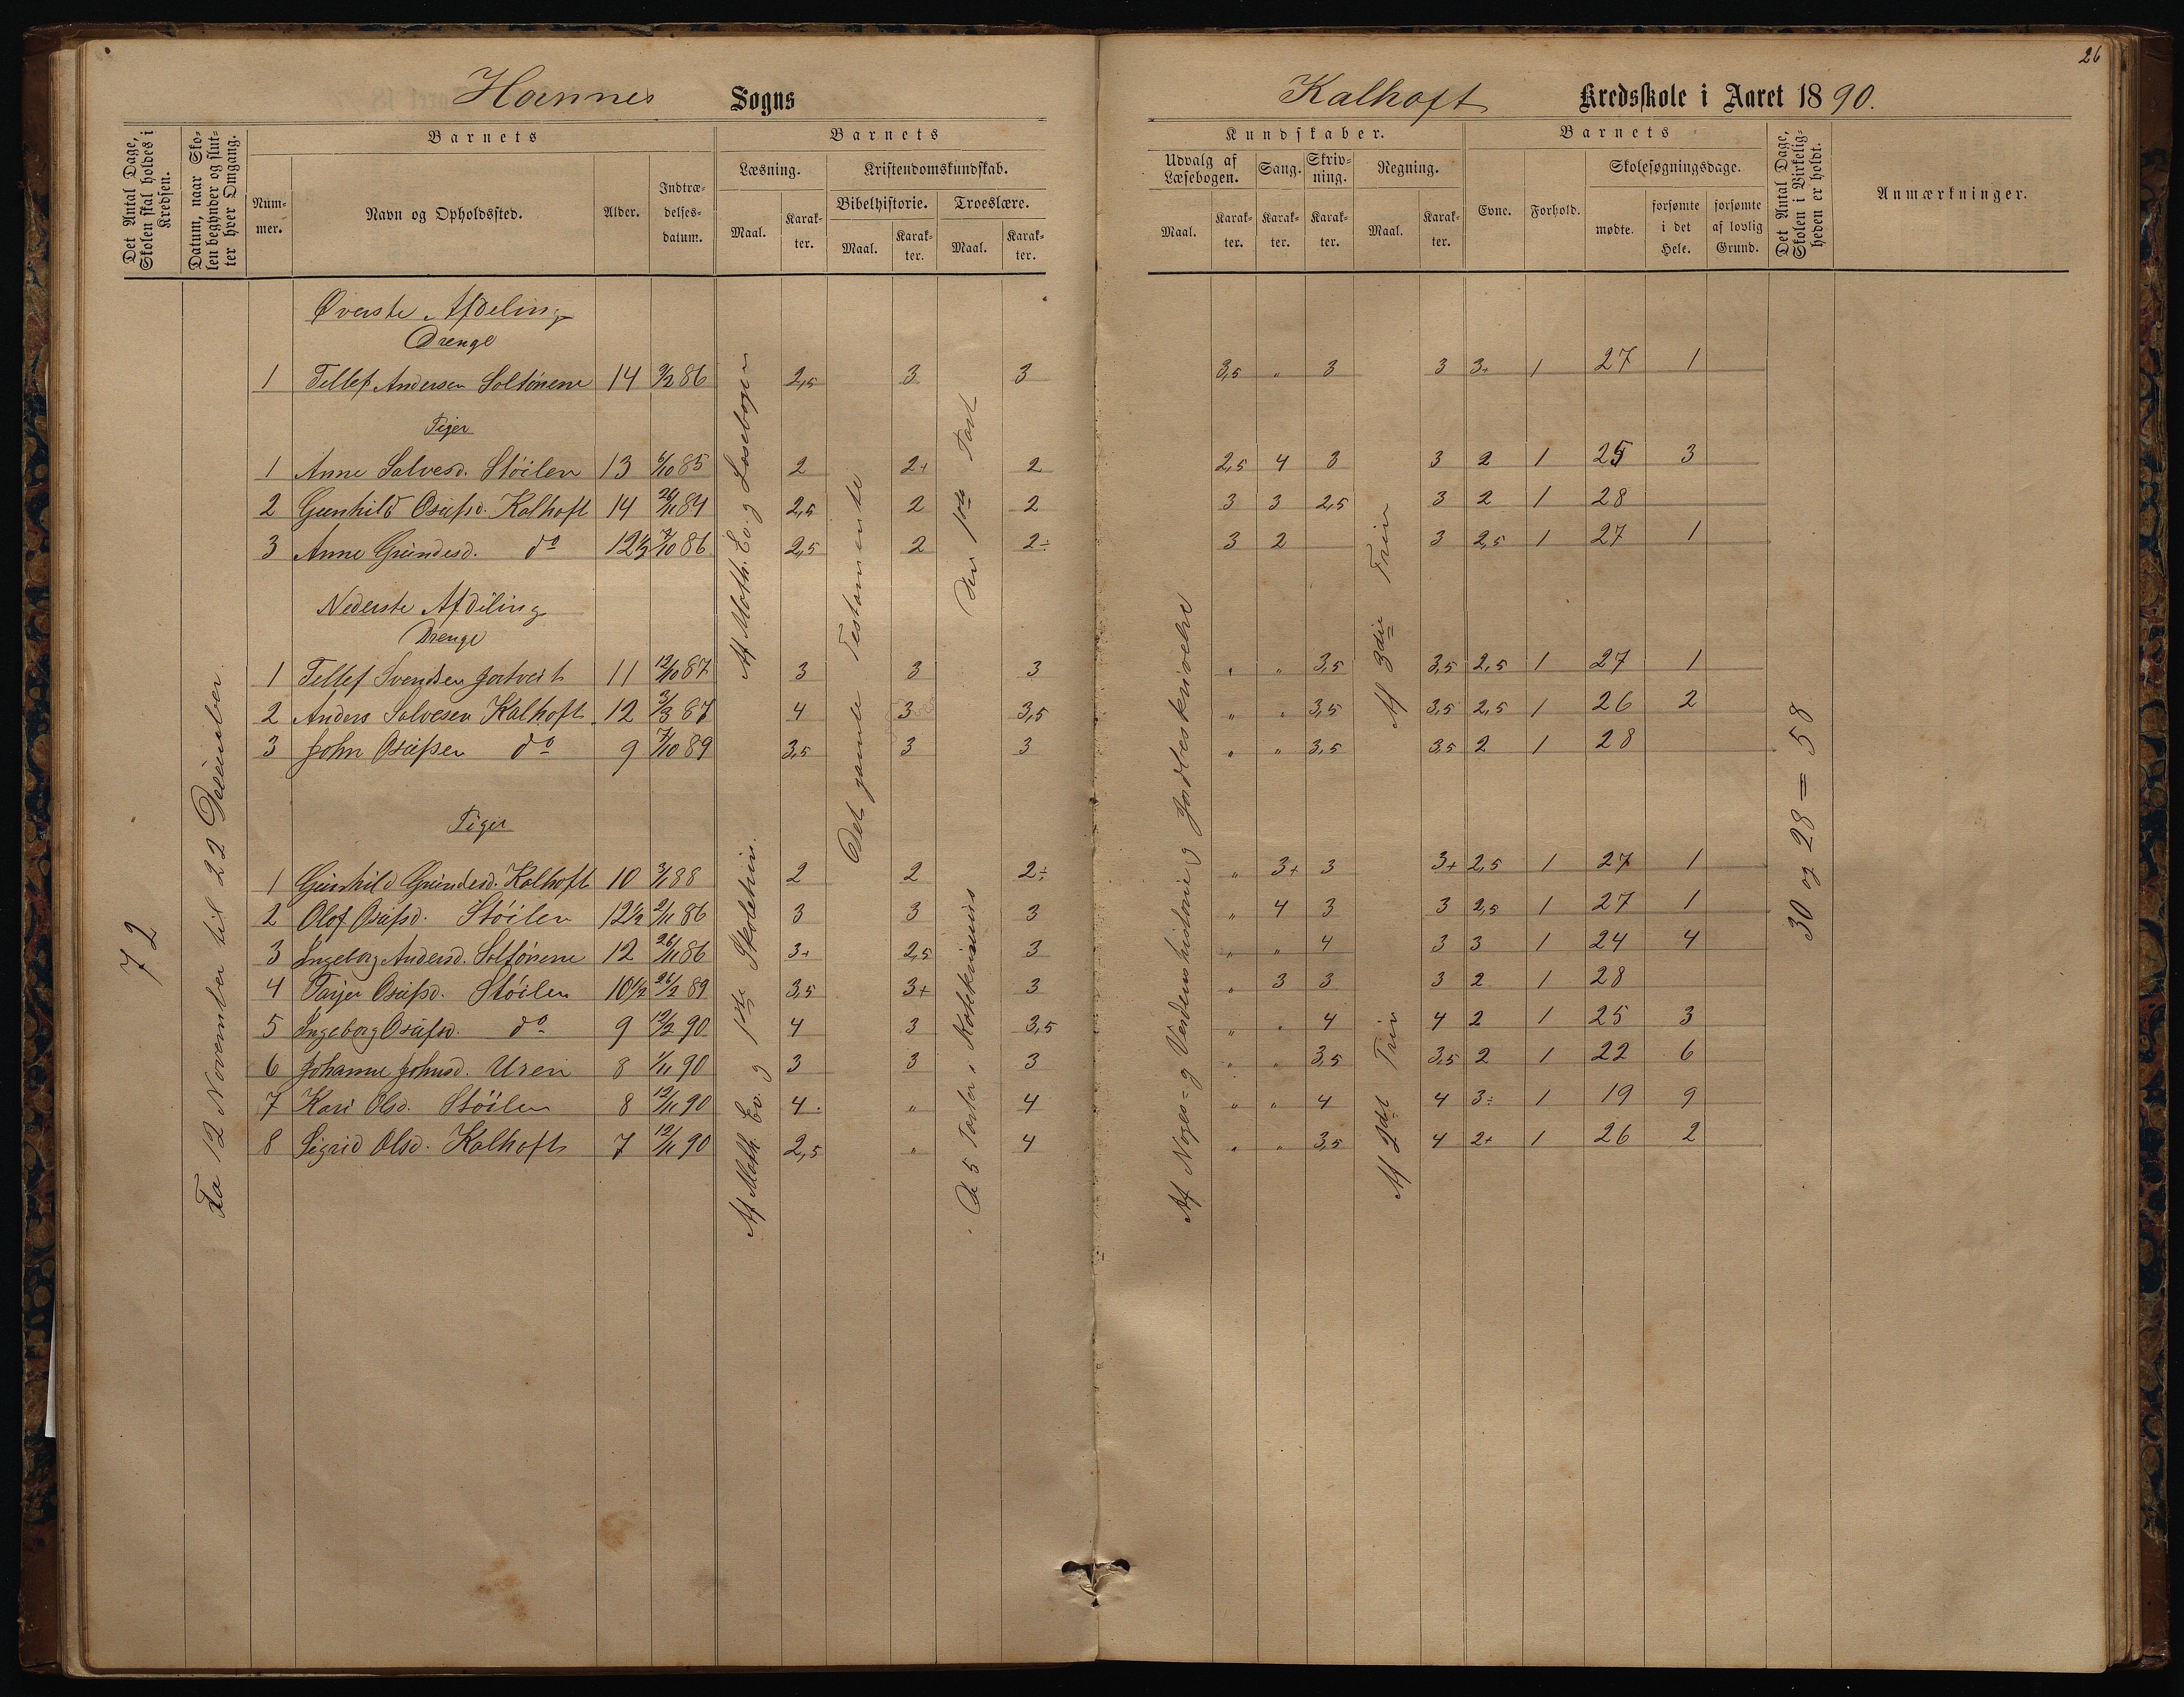 26
Hornnes Sogns
Kalhoft Kredsskole i Aaret 1890.
Det Antal Dage, Skolen skal holdes i Kredsen.
Datum, naar Skolen begynder og slutter hver Omgang.
Barnets
Nummer.
Navn og Opholdssted.
Alder.
Indtrædelsesdatum.
Barnets
Læsning.
Maal.
Karakter.
Kristendomskundskab.
Bibelhistorie.
Maal.
Karakter.
Troeslære.
Maal.
Karakter.
Kundskaber.
Udvalg af Læsebogen.
Maal.
Karakter.
Sang.
Karakter.
Skrivning.
Karakter.
Regning.
Maal.
Karakter.
Barnets
Evne.
Forhold.
Skolesøgningsdage.
mødte.
forsømte i det Hele.
forsømte af lovlig Grund.
Det Antal Dage, Skolen i Virkeligheden er holdt.
Anmærkninger.
72
Fra 12 November til 22 Desember.
Af Math. Ev. og Læsebogen
Af Math Ev. og 1ste Skoletrin.
Det gamle Testamente
Den 1ste Part
De 5 Parter i Katekismus
Af Norges- og Verdenshistorie og Jordbeskrivelse
Af 3die Trin
Af 2det Trin
30 og 28 = 58
Øverste Afdeling
Drenge
1 Tellef Andersen 14 9/2 86 2,5 3 3 3,5 " 3 3 3+ 1 27 1
Piger
1 Anne Salvesd. Støilen 13 6/10 85 2 2+ 2 2,5 4 3 3 2 1 25 3
2 Gunhild Osufsd. Kalhoft 14 24/11 84 2,5 2 2 3 3 2,5 3 2 1 28
3 Anne Gundesd. do 12½ 7/10 86 2,5 2 2÷ 3 2 3 2,5 1 27 1
Nederste Afdeling
Drenge
1 Tellef Svendsen 11 12/10 87 3 3 3 " " 3,5 3,5 2,5 1 27 1
2 Anders Salvesen Kalhoft 12 3/3 87 4 3 3,5 " " 3,5 3,5 2,5 1 26 2
3 John Osufsen do 9 7/10 89 3,5 3 3 " " 3,5 3,5 2 1 28
Piger
1 Gunhild Gundesd. Kalhoft 10 3/1 88 2 2 2÷ " 3+ 3 3+ 2,5 1 27 1
2 Olof Osufsd. Støilen 12½ 2/11 86 3 3 3 " 4 3 3 2,5 1 27 1
3 Ingeborg Andersd. 12 26/11 86 3+ 2,5 3 " " 4 3 3 1 24 4
4 Tarjer Osufsd. Støilen 10½ 26/2 89 3,5 3+ 3 " 3 3 3 2 1 28
5 Ingeborg Osufsd. do 9 12/2 90 4 3 3,5 " " 4 4 2 1 25 3
6 Johanne Johnsd. Uren 8 1/11 90 3 3 3 " " 3,5 3,5 2 1 22 6
7 Kari Olsd. Støilen 8 12/11 90 4 " 4 " " 4 4 3÷ 1 19 9
8 Sigrid Olsd. Kalhoft 7 12/11 90 2,5 " 4 " " 3,5 4 2+ 1 26 2